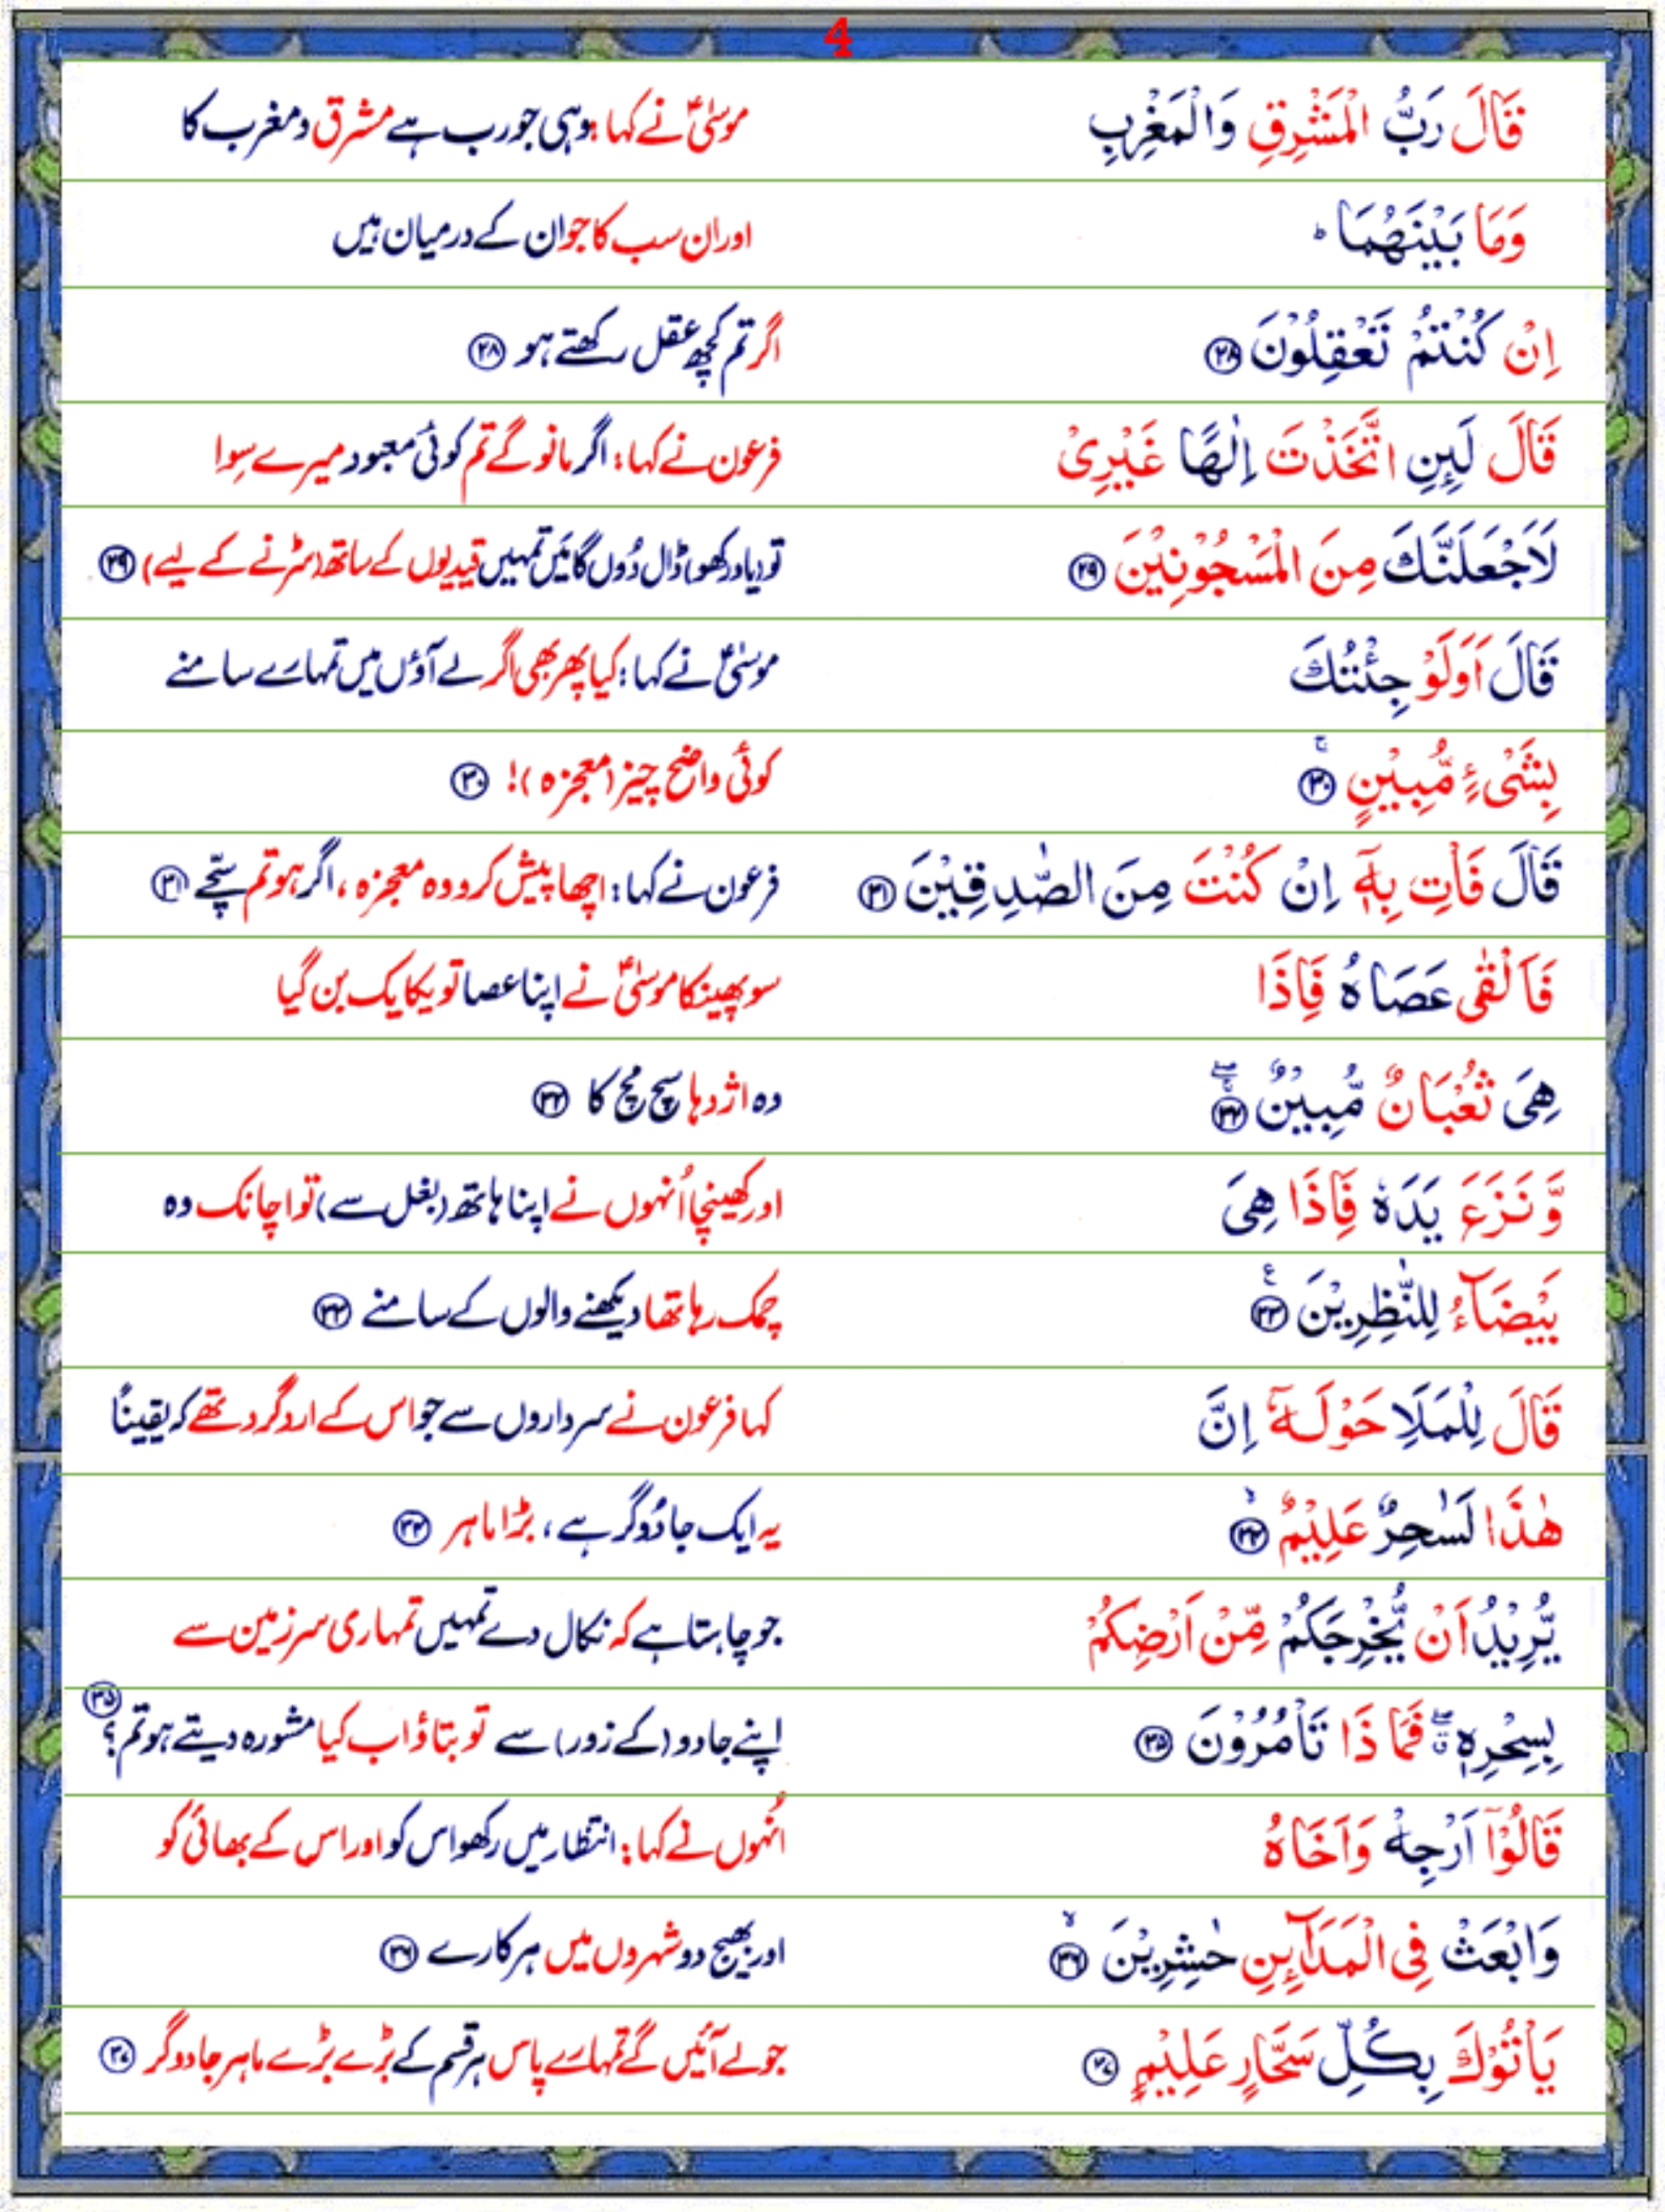 4
قَالَ رَبُّ الْمَشْرِقِ وَالْمَغْرِبِ موسٰیؑ نے کہا: وہی جو رب ہے مشرق و مغرب کا
وَمَا بَيْنَهُمَا ؕ اور ان سب کا جو ان کے درمیان ہیں
اِنْ كُنْتُمْ تَعْقِلُوْنَ ۲۸ اگر تم کچھ عقل رکھتے ہو ۲۸
قَالَ لَىِٕنِ اتَّخَذْتَ اِلٰهًا غَيْرِىْ فرعون نے کہا: اگر مانو گے تم کوئی معبود میرے سِوا
لَاَجْعَلَنَّكَ مِنَ الْمَسْجُوْنِيْنَ ۲۹ تو (یاد رکھو) ڈال دُوں گا مَیں تمہیں قیدیوں کے ساتھ (سڑنے کے لیے) ۲۹
قَالَ اَوَلَوْ جِئْتُكَ موسٰیؑ نے کہا: کیا پھر بھی اگر لے آؤں میں تمہارے سامنے
بِشَىْءٍ مُّبِيْنٍ ۚ ۳۰ کوئی واضح چیز (معجزہ)! ۳۰
قَالَ فَاْتِ بِهٖۤ اِنْ كُنْتَ مِنَ الصّٰدِقِيْنَ ۳۱ فرعون نے کہا: اچھا پیش کرو وہ معجزہ، اگر ہو تم سچّے ۳۱
فَاَلْقٰى عَصَاهُ فَاِذَا سو پھینکا موسٰیؑ نے اپنا عصا تو یکایک بن گیا
هِىَ ثُعْبَانٌ مُّبِيْنٌ ۚۖ ۳۲ وہ اژدہا سچ مچ کا ۳۲
وَّنَزَعَ يَدَهٗ فَاِذَا هِىَ اور کھینچا اُنہوں نے اپنا ہاتھ (بغل سے) تو اچانک وہ
بَيْضَآءُ لِلنّٰظِرِيْنَ ۳۳ ع چمک رہا تھا دیکھنے والوں کے سامنے ۳۳
قَالَ لِلْمَلَاِ حَوْلَهٗۤ اِنَّ کہا فرعون نے سرداروں سے جو اس کے اردگرد تھے کہ یقیناً
هٰذَا لَسٰحِرٌ عَلِيْمٌ ۙ ۳۴ یہ ایک جادُوگر ہے، بڑا ماہر ۳۴
يُّرِيْدُ اَنْ يُّخْرِجَكُمْ مِّنْ اَرْضِكُمْ جو چاہتا ہے کہ نکال دے تمہیں تمہاری سرزمین سے
بِسِحْرِهٖ ۖۗ فَمَاذَا تَاْمُرُوْنَ ۳۵ اپنے جادو (کے زور) سے تو بتاؤ اب کیا مشورہ دیتے ہو تم؟ ۳۵
قَالُوْۤا اَرْجِهْ وَاَخَاهُ اُنہوں نے کہا: انتظار میں رکھو اس کو اور اس کے بھائی کو
وَابْعَثْ فِى الْمَدَآىِٕنِ حٰشِرِيْنَ ۙ ۳۶ اور بھیج دو شہروں میں ہرکارے ۳۶
يَاْتُوْكَ بِكُلِّ سَحَّارٍ عَلِيْمٍ ۳۷ جو لے آئیں گے تمہارے پاس ہر قسم کے بڑے بڑے ماہر جادوگر ۳۷